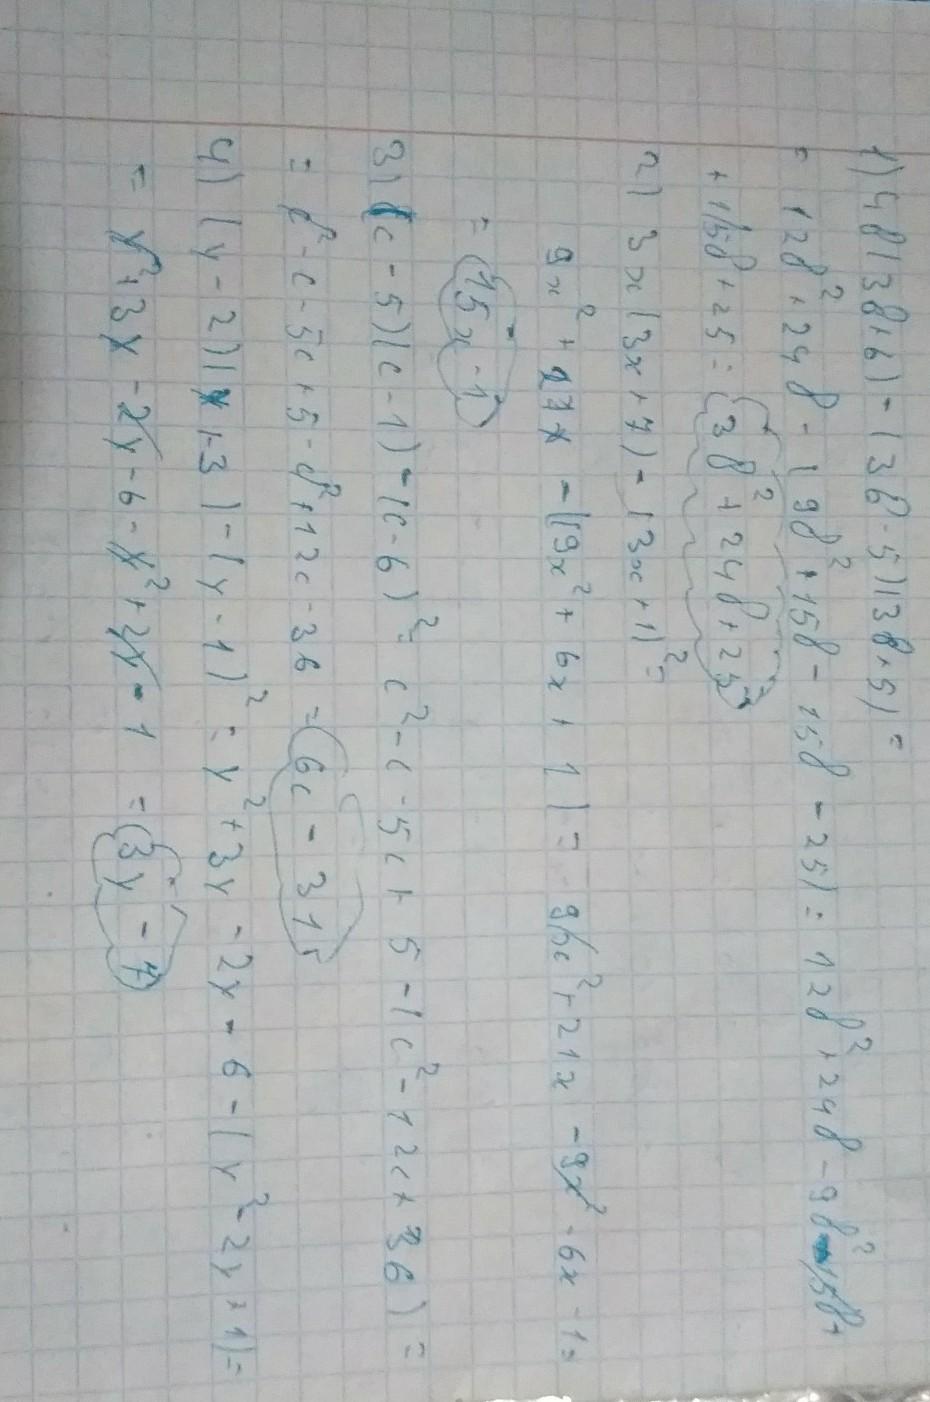 1) 4b(3b+6) - (3b-5)(3b+5) =
= 12b² + 24b - (9b² + 15b - 15b - 25) = 12b² + 24b - 9b² - 15b +
+ 15b + 25 = 3b² + 24b + 25
2) 3x(3x+7) - (3x+1)² =
9x² + 27x - (9x² + 6x + 1) = 9x² + 21x - 9x² - 6x - 1 =
= 15x - 1
3) (c-5)(c-1) - (c-6)² = c² - c - 5c + 5 - (c² - 12c + 36) =
= c² - c - 5c + 5 - c² + 12c - 36 = 6c - 31
4) (y-2)(y+3) - (y-1)² = y² + 3y - 2y - 6 - (y² - 2y + 1) =
= y² + 3y - 2y - 6 - y² + 2y - 1 = 3y - 7